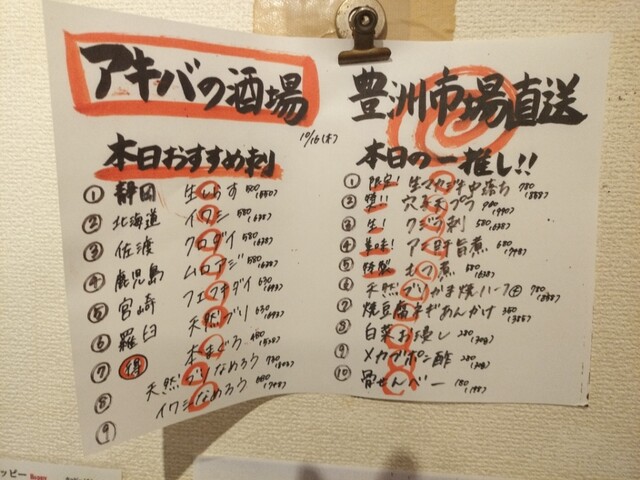 アキバの酒場
10/16(木)
本日おすすめ刺
① 静岡 生しらす 500(550)
② 北海道 イワシ 580(638)
③ 佐渡 クロダイ 580(638)
④ 鹿児島 ムロアジ 580(638)
⑤ 宮崎 フエフキダイ 630(693)
⑥ 羅臼 天然ブリ 630(693)
⑦ 得 本まぐろ 480(528)
⑧ 天然ブリなめろう 730(803)
⑨ イワシなめろう 680(748)
豊洲市場直送
本日の一推し!!
① 限定! 生 中落ち 780(858)
② 穴子天プラ 900(990)
③ 生! クジラ刺 580(638)
④ 美味! アン肝旨煮 680(748)
⑤ 特製 もつ煮 580(638)
⑥ 天然ブリかま焼ハーフ 780(858)
⑦ 焼豆腐ネギあんかけ 350(385)
⑧ 白菜お浸し 280(308)
⑨ メカブポン酢 280(308)
⑩ 骨せんべー 180(198)
ッピー